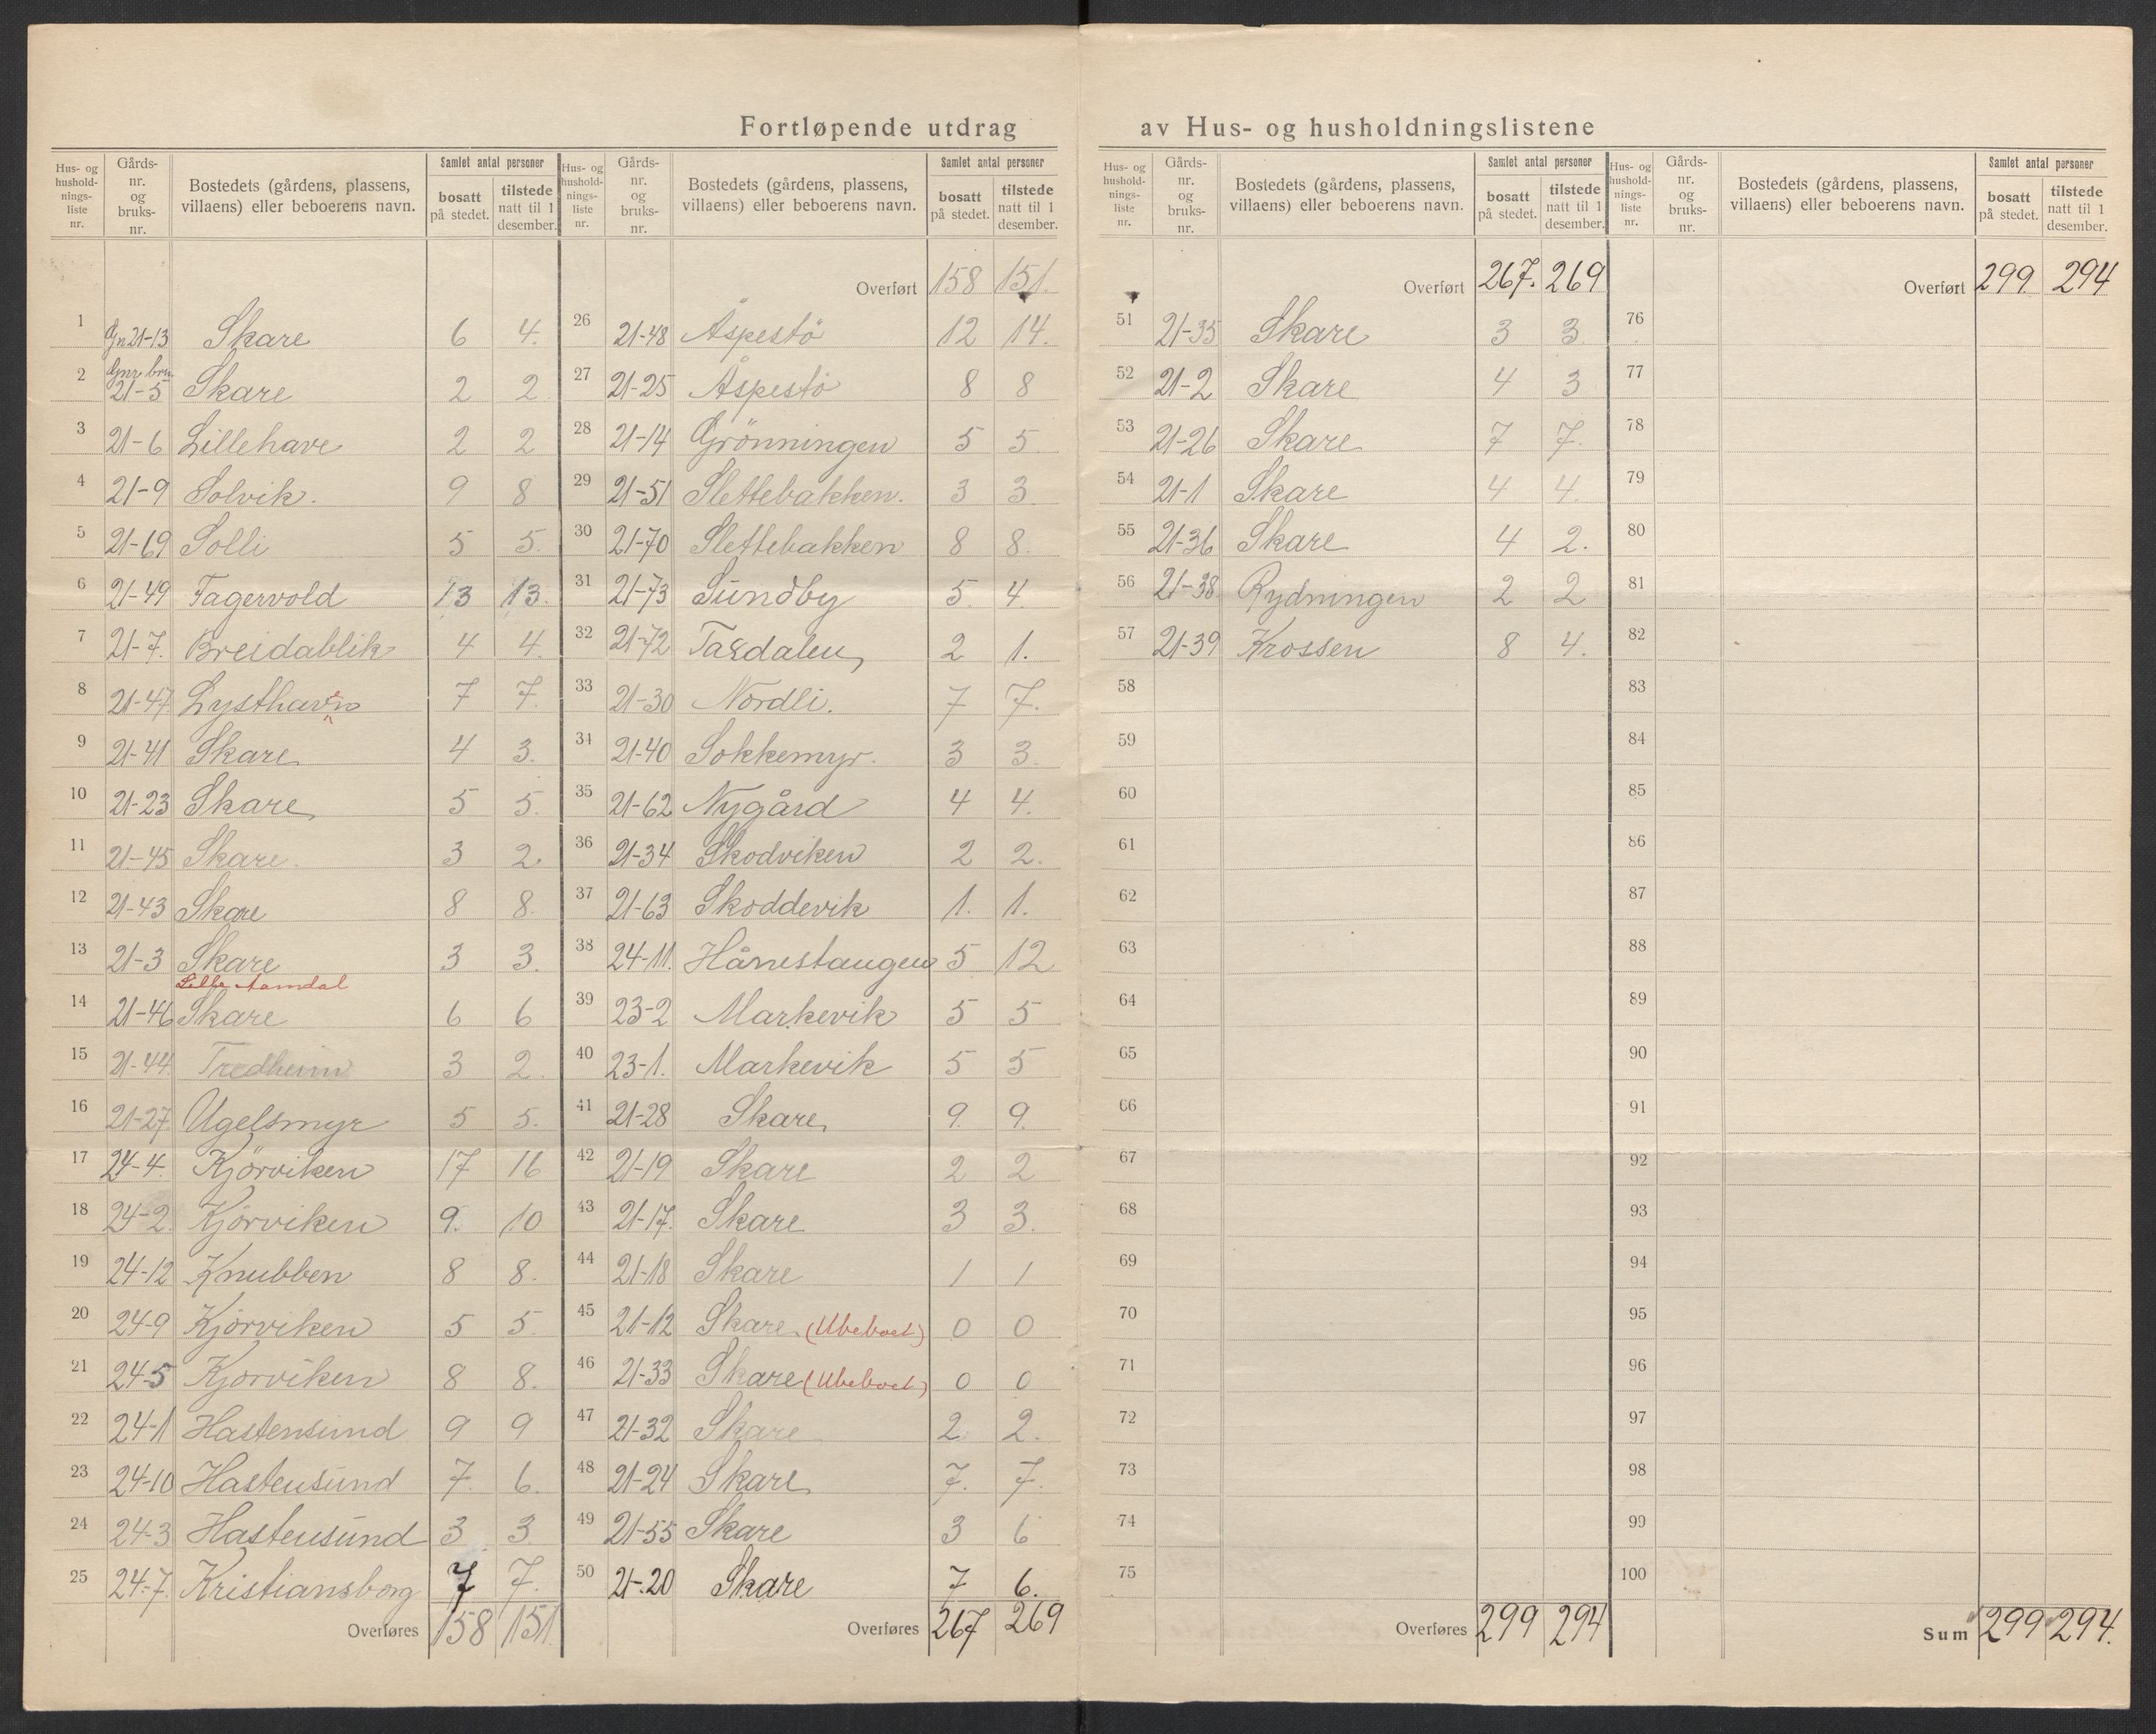 Fortløpende utdrag av Hus- og husholdningslistene
Hus- og hushold-nings-liste nr. | Gårds-nr. og bruks-nr. | Bostedets (gårdens, plassens, villaens) eller beboerens navn. | Samlet antal personer bosatt på stedet. | tilstede natt til 1 desember.
1 Gn 21-13 Skare 6 4.
2 Gnr brn. 21-5 Skare 2 2
3 21-6 Lillehave 2 2
4 21-9 Solvik. 9 8
5 21-69 Solli 5 5.
6 21-49 Fagervold 13 13.
7 21-7. Breidablik 4 4.
8 21-47 Lysthavn 7 7.
9 21-41 Skare 4 3.
10 21-23 Skare 5 5.
11 21-45 Skare. 3 2.
12 21-43 Skare 8 8.
13 21-3 Skare 3 3.
Lille Aamdal
14 21-46 Skare 6 6
15 21-44 Tredheim 3 2.
16 21-27. Ugelsmyr 5 5.
17 24-4. Kjörviken 17 16
18 24-2. Kjörviken 9. 10
19 24-12 Knubben 8 8.
20 24-9 Kjörviken 5 5.
21 24-5 Kjörviken 8 8.
22 24-1 Hastensund 9 9
23 24-10 Hastensund 7. 6.
24 24-3 Hastensund 3 3
25 24-7. Kristiansborg 7 7.
Overføres 158 151.
Hus- og hushold-nings-liste nr. | Gårds-nr. og bruks-nr. | Bostedets (gårdens, plassens, villaens) eller beboerens navn. | Samlet antal personer bosatt på stedet. | tilstede natt til 1 desember.
Overført 158 151.
26 21-48 Åspestö 12 14.
27 21-25 Åspestö 8 8
28 21-14 Grönningen 5 5.
29 21-51 Slettebakken. 3 3
30 21-70 Slettebakken 8 8.
31 21-73 Sundby 5. 4.
32 21-72 Tasdalen 2 1.
33 21-30 Nordli. 7 7.
34 21-40 Sokkemyr. 3 3.
35 21-62 Nygård 4 4.
36 21-34 Skodviken 2 2.
37 21-63 Skoddevik 1. 1.
38 24-11. Hånestangen 5 12
39 23-2 Markevik 5 5
40 23-1. Markevik 5 5
41 21-28 Skare 9. 9.
42 21-19 Skare 2 2
43 21-17. Skare 3 3.
44 21-18 Skare 1 1
45 21-12 Skare (Ubeboet) 0 0
46 21-33 Skare (Ubeboet) 0 0
47 21-32 Skare 2. 2.
48 21-24 Skare 7. 7.
49 21-55 Skare 3 6
50 21-20 Skare 7 6.
Overføres 267 269
Hus- og hushold-nings-liste nr. | Gårds-nr. og bruks-nr. | Bostedets (gårdens, plassens, villaens) eller beboerens navn. | Samlet antal personer bosatt på stedet. | tilstede natt til 1 desember.
Overført 267. 269
51 21-35 Skare 3 3.
52 21-2 Skare 4 3
53 21-26 Skare 7 7.
54 21-1 Skare 4 4.
55 21-36 Skare 4 2.
56 21-38 Rydningen 2 2
57 21-39 Krossen 8 4.
58
59
60
61
62
63
64
65
66
67
68
69
70
71
72
73
74
75
Overføres 299 294
Hus- og hushold-nings-liste nr. | Gårds-nr. og bruks-nr. | Bostedets (gårdens, plassens, villaens) eller beboerens navn. | Samlet antal personer bosatt på stedet. | tilstede natt til 1 desember.
Overført 299 294
76
77
78
79
80
81
82
83
84
85
86
87
88
89
90
91
92
93
94
95
96
97
98
99
100
Sum 299 294.